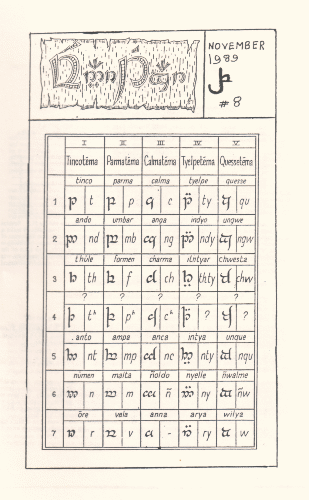 NOVEMBER
1989
#8
I II III IV V
Tincotéma Parmatéma Calmatéma Tyelpetéma Quessetéma
tinco parma calma tyelpe quesse
1 t p c ty qu
ando umbar anga indyo ungwe
2 nd mb ng ndy ngw
thúle formen charma chwesta
3 th f ch thty chw
? ? ? ? ?
4 tʰ pʰ cʰ ? ?
anto ampa anca intya unque
5 nt mp nc nty nqu
númen malta ñoldo nyelle ñwalme
6 n m ñ ny ñw
óre vala anna arya wilya
7 r v - ry w